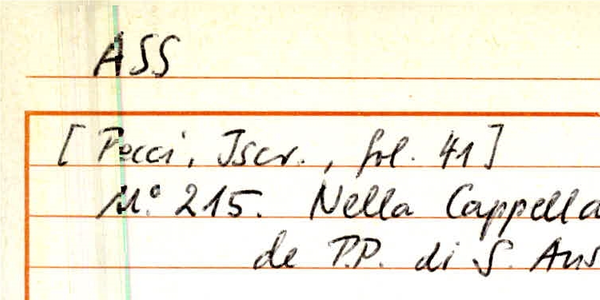 ASS
[Pecci, Iscr., fol. 41]
N° 215. Nella Cappella
de P.P. di S. Aus